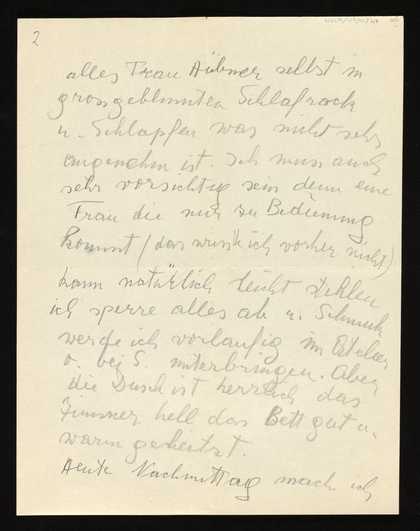 2
alles Frau Hübner selbst in
grossgeblumten Schlafrock
u. Schlapfen was nicht sehr
angenehm ist. Ich muss auch
sehr vorsichtig sein denn eine
Frau die mir zu Bedienung
kommt (das wusste ich vorher nicht)
kann natürlich leicht stehlen
ich sperre alles ab u. Schmuck
werde ich vorläufig im Atelier
o. bei S. unterbringen. Aber
die Dusch ist herrlich das
Zimmer hell das Bett gut u.
warm geheitzt.
Heute Nachmittag mach ich